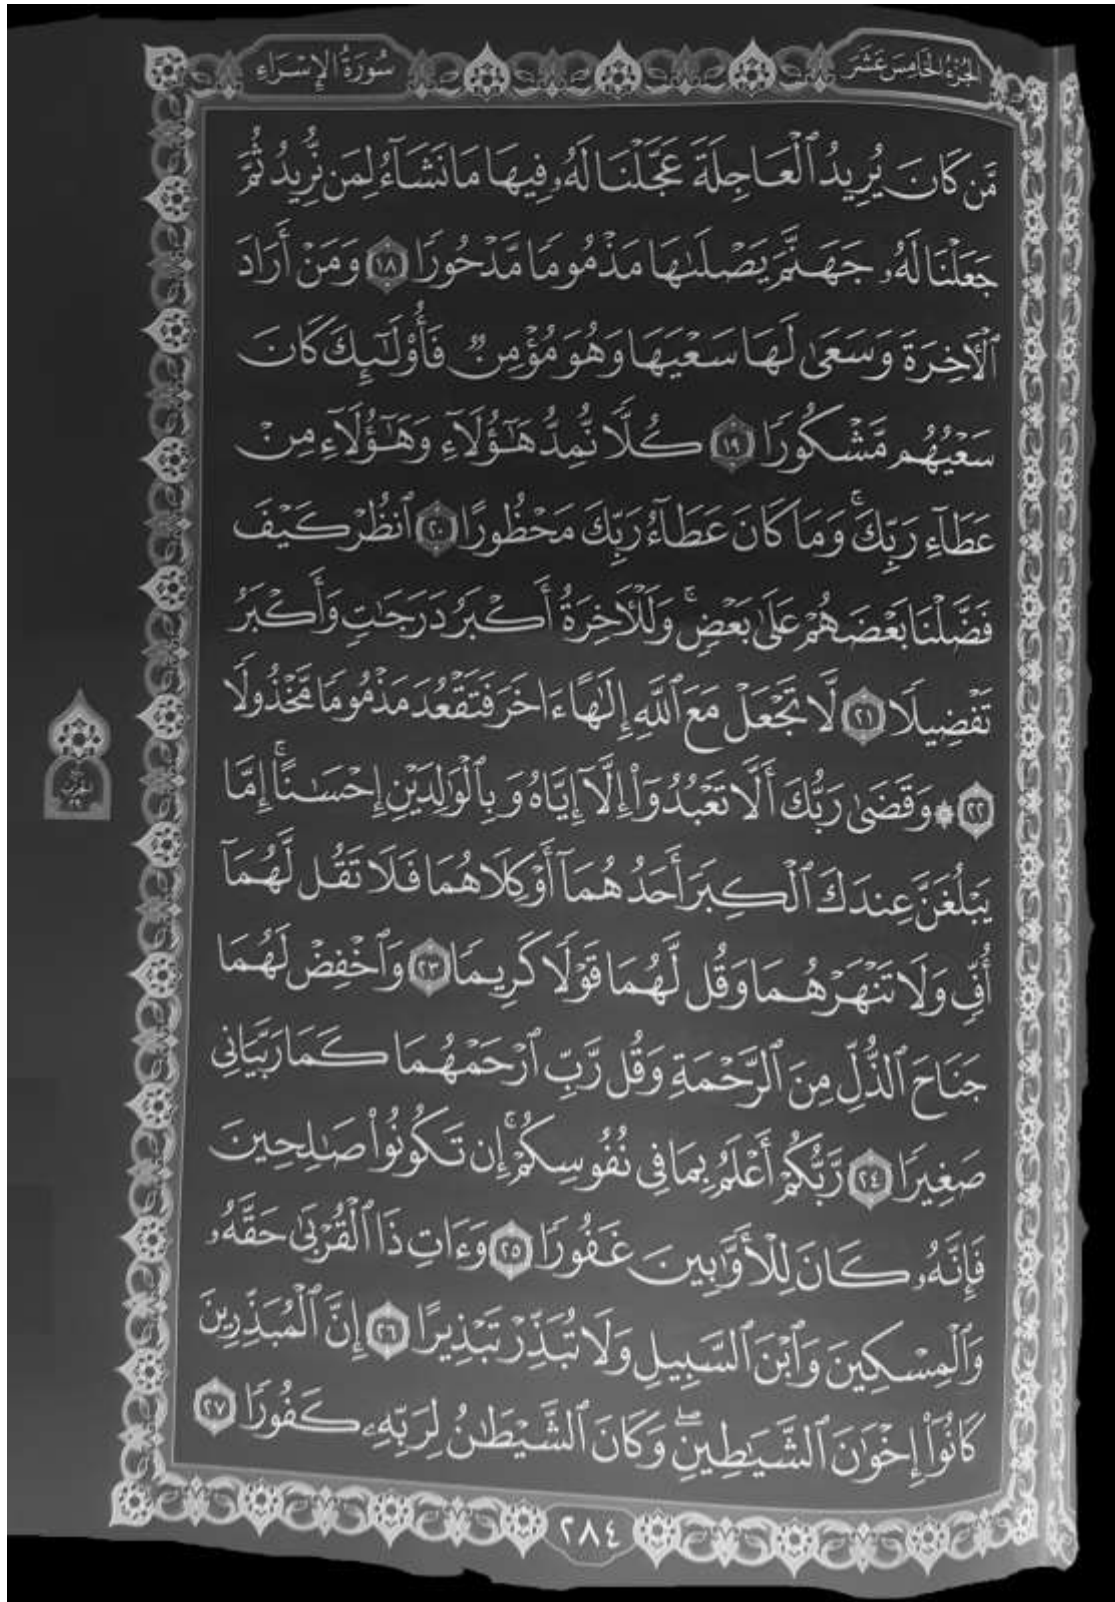 الجزء الخامس عشر
سورة الإسراء
مَّن كَانَ يُرِيدُ ٱلْعَاجِلَةَ عَجَّلْنَا لَهُۥ فِيهَا مَا نَشَآءُ لِمَن نُّرِيدُ ثُمَّ
جَعَلْنَا لَهُۥ جَهَنَّمَ يَصْلَىٰهَا مَذْمُومًا مَّدْحُورًا ١٨ وَمَنْ أَرَادَ
ٱلْأَخِرَةَ وَسَعَىٰ لَهَا سَعْيَهَا وَهُوَ مُؤْمِنٌ فَأُو۟لَٰٓئِكَ كَانَ
سَعْيُهُم مَّشْكُورًا ١٩ كُلًّا نُّمِدُّ هَٰٓؤُلَآءِ وَهَٰٓؤُلَآءِ مِنْ
عَطَآءِ رَبِّكَ ۚ وَمَا كَانَ عَطَآءُ رَبِّكَ مَحْظُورًا ٢٠ ٱنظُرْ كَيْفَ
فَضَّلْنَا بَعْضَهُمْ عَلَىٰ بَعْضٍ ۚ وَلَلْأَخِرَةُ أَكْبَرُ دَرَجَٰتٍ وَأَكْبَرُ
تَفْضِيلًا ٢١ لَّا تَجْعَلْ مَعَ ٱللَّهِ إِلَٰهًا ءَاخَرَ فَتَقْعُدَ مَذْمُومًا مَّخْذُولًا
٢٢ ۞ وَقَضَىٰ رَبُّكَ أَلَّا تَعْبُدُوٓا۟ إِلَّآ إِيَّاهُ وَبِٱلْوَٰلِدَيْنِ إِحْسَٰنًا ۚ إِمَّا
يَبْلُغَنَّ عِندَكَ ٱلْكِبَرَ أَحَدُهُمَآ أَوْ كِلَاهُمَا فَلَا تَقُل لَّهُمَآ
أُفٍّ وَلَا تَنْهَرْهُمَا وَقُل لَّهُمَا قَوْلًا كَرِيمًا ٢٣ وَٱخْفِضْ لَهُمَا
جَنَاحَ ٱلذُّلِّ مِنَ ٱلرَّحْمَةِ وَقُل رَّبِّ ٱرْحَمْهُمَا كَمَا رَبَّيَانِى
صَغِيرًا ٢٤ رَّبُّكُمْ أَعْلَمُ بِمَا فِى نُفُوسِكُمْ ۚ إِن تَكُونُوا۟ صَٰلِحِينَ
فَإِنَّهُۥ كَانَ لِلْأَوَّٰبِينَ غَفُورًا ٢٥ وَءَاتِ ذَا ٱلْقُرْبَىٰ حَقَّهُۥ
وَٱلْمِسْكِينَ وَٱبْنَ ٱلسَّبِيلِ وَلَا تُبَذِّرْ تَبْذِيرًا ٢٦ إِنَّ ٱلْمُبَذِّرِينَ
كَانُوٓا۟ إِخْوَٰنَ ٱلشَّيَٰطِينِ ۖ وَكَانَ ٱلشَّيْطَٰنُ لِرَبِّهِۦ كَفُورًا ٢٧
٢٨٤